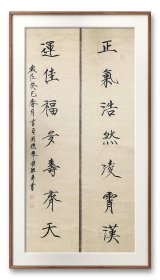 正氣浩然凌霄漢
運佳福多壽齊天
歲在癸巳